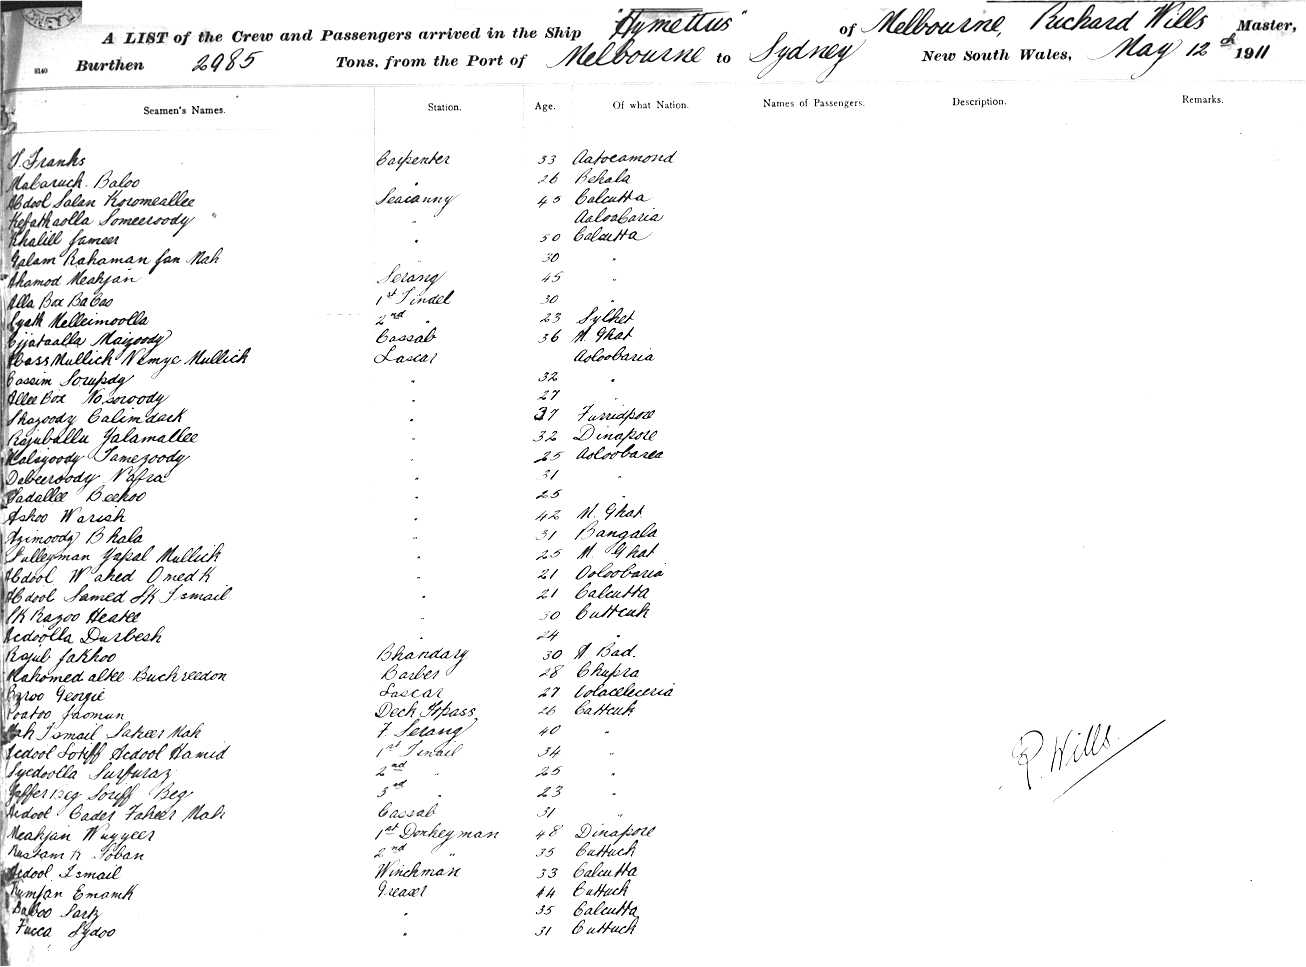 A LIST of the Crew and Passengers arrived in the Ship "Hymettus" of Melbourne, Richard Wills Master,
Burthen 2985 Tons, from the Port of Melbourne to Sydney New South Wales, May 12th 1911
Seamen's Names. Station. Age. Of what Nation. Names of Passengers. Description. Remarks.
J. Franks Carpenter 33 Aatocamond
Mabaruck Baloo " 26 Behala
Abdool Salan Koromeallee Seacunny 45 Calcutta
Kefathaolla Someeroody " " Aoloobaria
Khalill Jameer " 50 Calcutta
Golam Rahaman Jan Mah 30 "
Ahamod Meahjan Serang 45 "
Alla Box Baboo 1st Tindel 30 "
Syath Melleimoolla 2nd " 23 Sylhet
Eijataalla Maizoody Cassab 36 N. Ghat
Abass Mullick Nemye Mullick Lascar Aoloobaria
Cassim Sorupdy " 32 "
Allee Box Nosoroody " 27 "
Shazoody Calimdack " 37 Furridpore
Rajuballu Yalamallee " 32 Dinapore
Tamezoody " 25 Aoloobarea
Dabeeroody Nafra " 31 "
Sadallee Beekoo " 25 "
Ashoo Warish " 42 N. Ghat
Azimoody Bhala " 31 Bangala
Sulleyman Yapal Mullick " 25 N. Ghat
Abdool Wahed Omedk " 21 Ooloobaria
Abdool Samed SK Ismail " 21 Calcutta
SK Razoo Heatee " 30 Cuttcuk
Abdoolla Durbesh " 24 "
Rajub Jakhoo Bhandary 30 A Bad.
Mahomed alkee Buchreedon Barber 28 Chupra
Georgie Lascar 27
Jaomun Deck Topass 26 Cattcuk
Ismail Saheer Mah F Serang 40 "
Abdool Soriff Abdool Hamid 1st Tindel 34 "
Syedoolla Surfuraz 2nd " 25 "
Yaffer Beg Soriff Beg 3rd " 23 "
Abdool Cader Faheer Mah Cassab 31 "
Meahjan Wuzzeer 1st Donkeyman 48 Dinapore
Rustam K Toban 2nd " 35 Cuttuck
Abdool Ismail Winchman 33 Calcutta
Rumjan Emamk Greaser 44 Cuttuck
Baboo Sark " 35 Calcutta
Fucca Sydoo " 31 Cuttuck
R. Wills